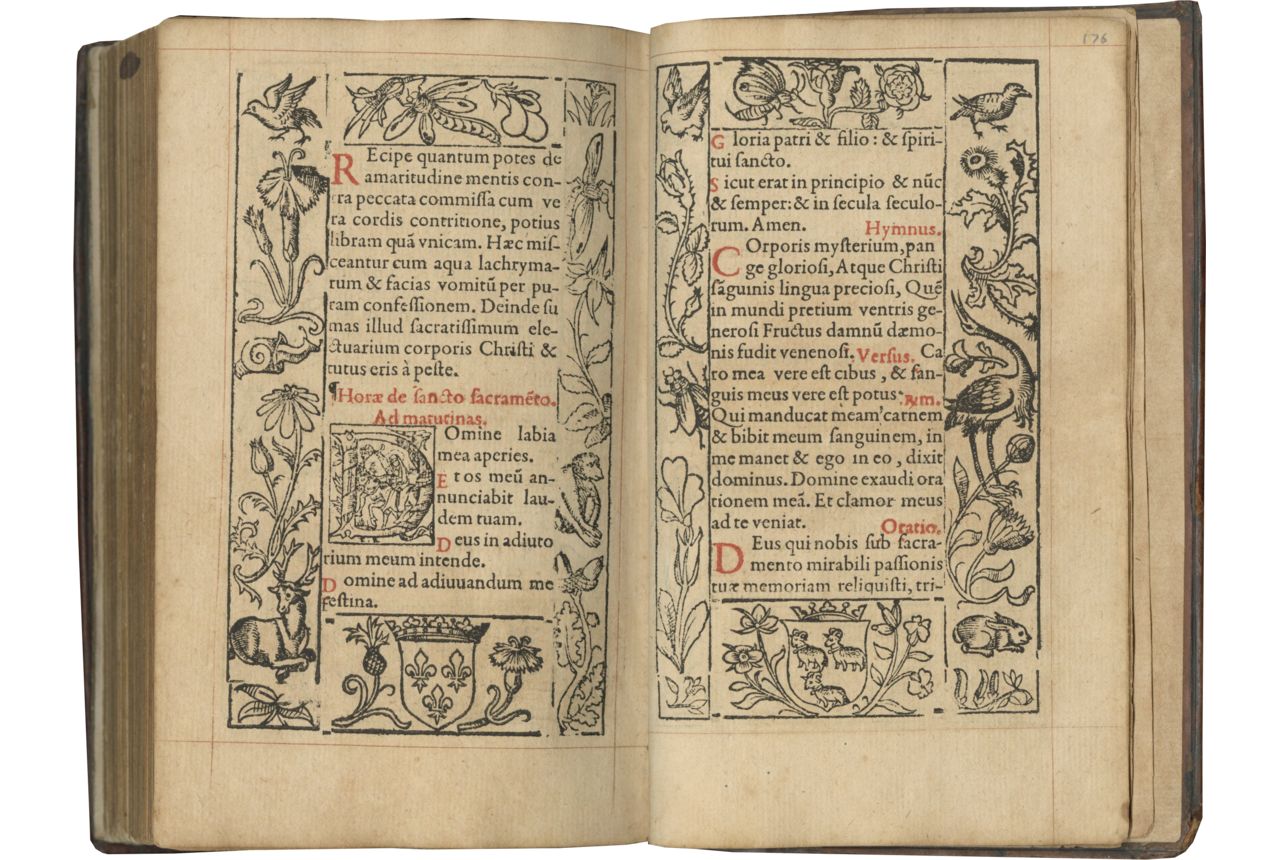 REcipe quantum potes de
amaritudine mentis con-
tra peccata commissa cum ve
ra cordis contritione, potius
libram quã vnicam. Hæc mis-
ceantur cum aqua lachryma-
rum & facias vomitũ per pu-
ram confessionem. Deinde su
mas illud sacratissimum ele-
ctuarium corporis Christi &
tutus eris à peste.
¶Horæ de sancto sacramẽto.
Ad matutinas.
DOmine labia
mea aperies.
Et os meũ an-
nunciabit lau-
dem tuam.
Deus in adiuto
rium meum intende.
Domine ad adiuuandum me
festina.
176
Gloria patri & filio : & spiri-
tui sancto.
Sicut erat in principio & nũc
& semper: & in secula seculo-
rum. Amen. Hymnus.
COrporis mysterium, pan
ge gloriosi, Atque Christi
sãguinis lingua preciosi, Quẽ
in mundi pretium ventris ge-
nerosi Fructus damnũ dæmo-
nis fudit venenosi. Versus. Ca
ro mea vere est cibus, & san-
guis meus vere est potus.
Qui manducat meam carnem
& bibit meum sanguinem, in
me manet & ego in eo, dixit
dominus. Domine exaudi ora
tionem meã. Et clamor meus
ad te veniat. Oratio.
DEus qui nobis sub sacra-
mento mirabili passionis
tuæ memoriam reliquisti, tri-